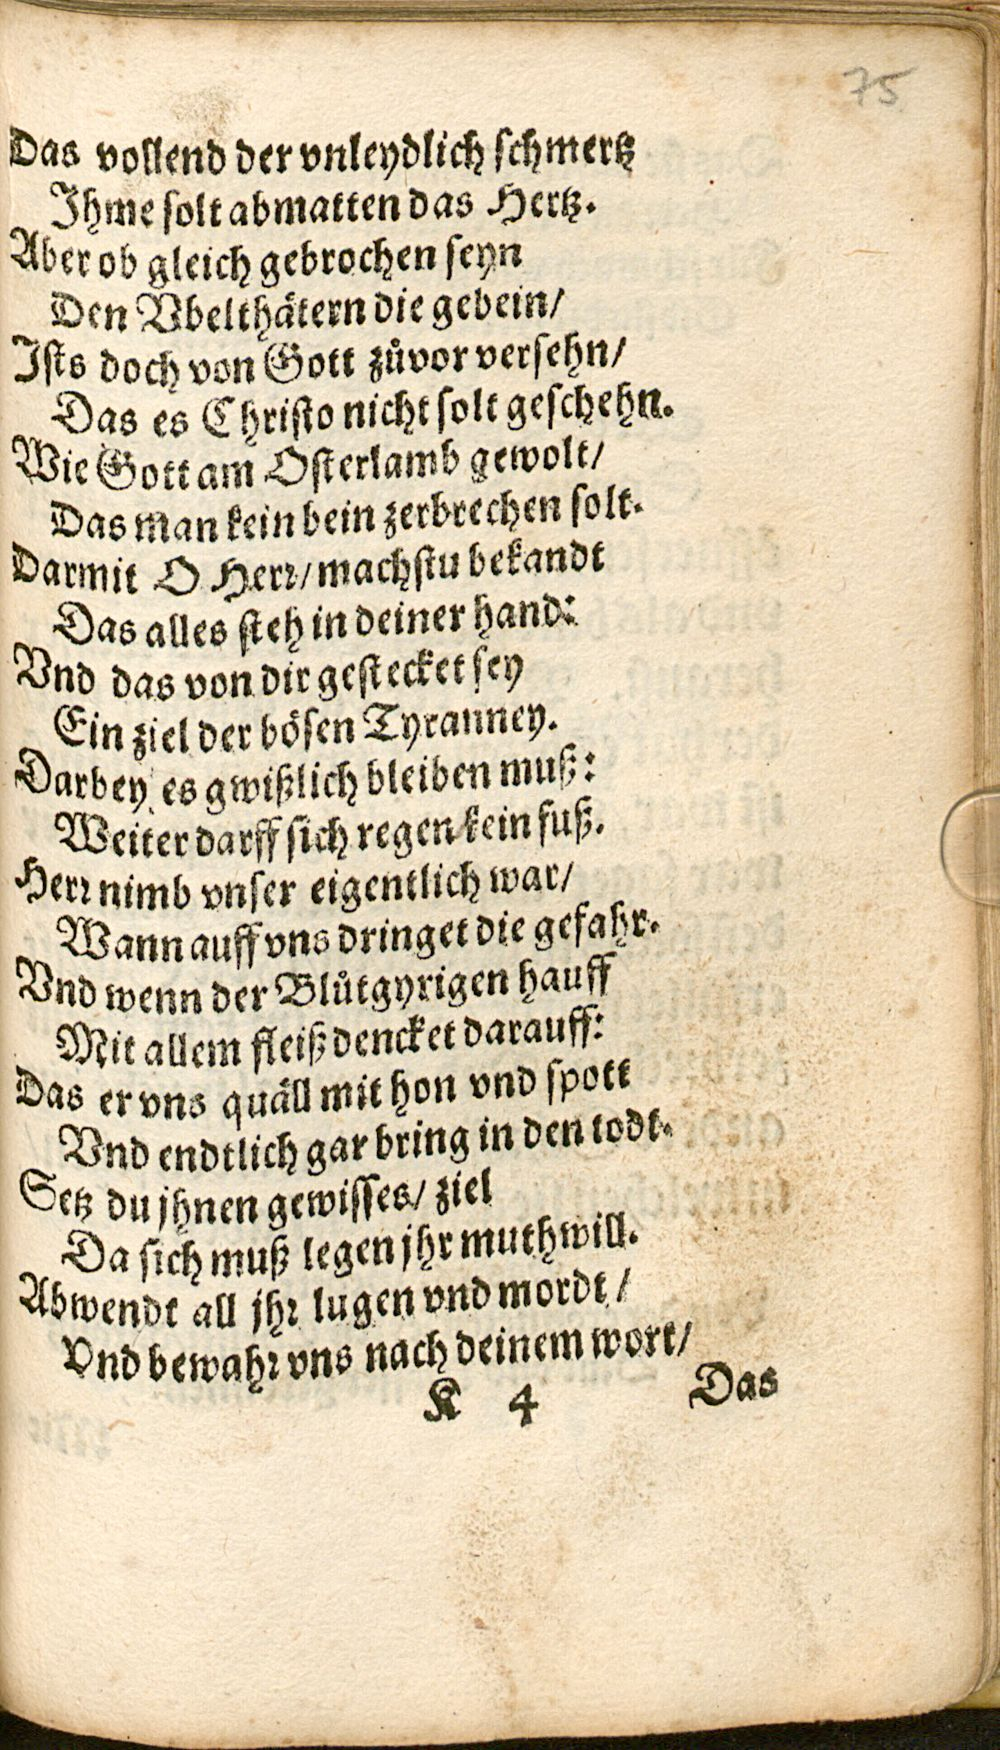 75
Das vollend der vnleydlich schmertz
Ihme solt abmatten das Hertz.
Aber ob gleich gebrochen seyn
Den Vbelthätern die gebein/
Ists doch von Gott zůvor versehn/
Das es Christo nicht solt geschehn.
Wie Gott am Osterlamb gewolt/
Das man kein bein zerbrechen solt.
Darmit O Herr/ machstu bekandt
Das alles steh in deiner hand:
Vnd das von dir gestecket sey
Ein ziel der bösen Tyranney.
Darbey es gwißlich bleiben muß:
Weiter darff sich regen kein fuß.
Herr nimb vnser eigentlich war/
Wann auff vns dringet die gefahr.
Vnd wenn der Blůtgyrigen hauff
Mit allem fleiß dencket darauff:
Das er vns quäll mit hon vnd spott
Vnd endtlich gar bring in den todt.
Setz du jhnen gewisses/ ziel
Da sich muß legen jhr muthwill.
Abwendt all jhr lugen vnd mordt/
Vnd bewahr vns nach deinem wort/
K 4 Das